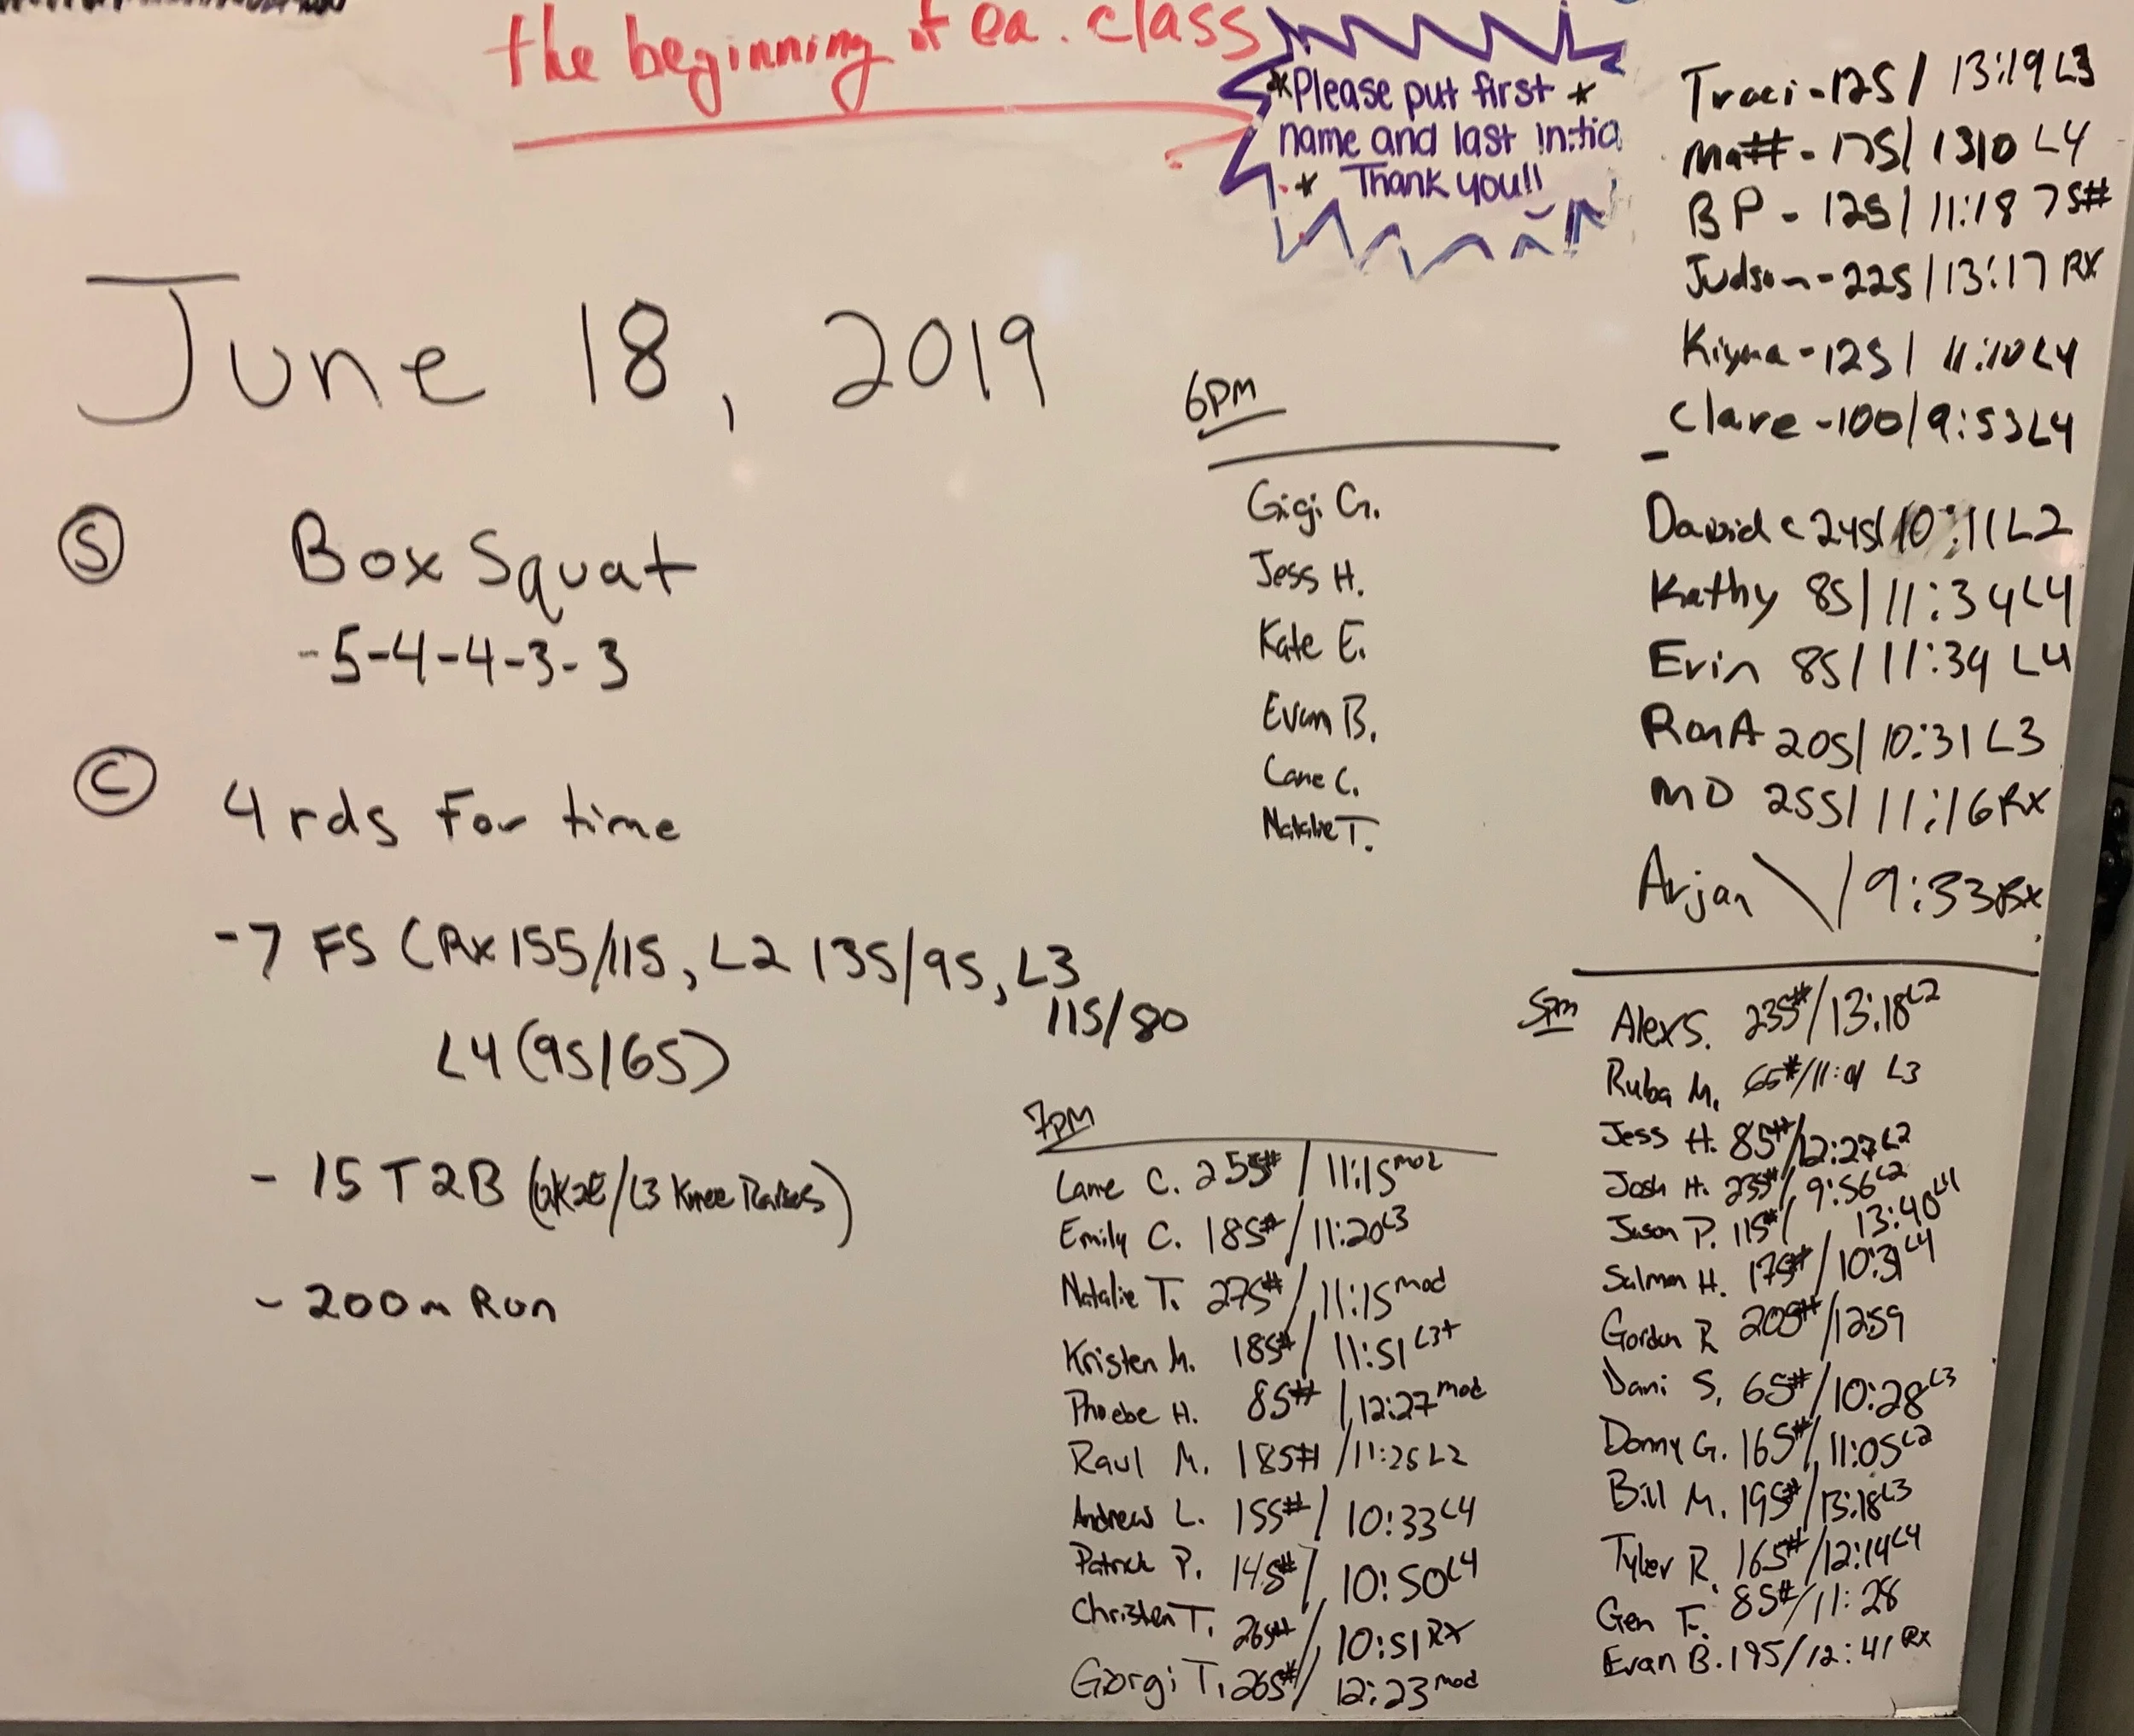 the beginning of ea. class
*Please put first *
name and last initia
* Thank you!!
June 18, 2019
Ⓢ Box Squat
-5-4-4-3-3
Ⓒ 4 rds For time
-7 FS (Rx 155/115, L2 135/95, L3
115/80
L4 (95/65)
- 15 T2B (L2 K2E/L3 Knee Raises)
- 200m Run
6pm
Gigi G.
Jess H.
Kate E.
Evan B.
Lane C.
Natalie T.
7pm
Lane C. 255# / 11:15 mod
Emily C. 185# / 11:20 L3
Natalie T. 275# / 11:15 mod
Kristen M. 185# / 11:51 L3+
Phoebe H. 85# / 12:27 mod
Raul M. 185# / 11:25 L2
Andrew L. 155# / 10:33 L4
Patrick P. 145# / 10:50 L4
Christen T. 265# / 10:51 RX
Giorgi T. 265# / 12:23 mod
Traci - 125 / 13:19 L3
Matt - 175 / 1310 L4
BP - 125 / 11:18 75#
Judson - 225 / 13:17 RX
Kiyma - 125 / 11:10 L4
Clare - 100 / 9:53 L4
David C 245/ 10:11 L2
Kathy 85 / 11:34 L4
Erin 85 / 11:34 L4
Ron A 205 / 10:31 L3
MD 255 / 11:16 Rx
Arjan \ / 9:33 Rx
5pm
Alex S. 235# / 13:18 L2
Ruba M. 65# / 11:01 L3
Jess H. 85# / 12:27 L2
Josh H. 235# / 9:56 L2
Jason P. 115# / 13:40 L4
Salman H. 175# / 10:31 L4
Gordon R 205# / 1259
Dani S. 65# / 10:28 L3
Donny G. 165# / 11:05 L2
Bill M. 195# / 13:18 L3
Tyler R. 165# / 12:14 L4
Gen F. 85# / 11:28
Evan B. 195 / 12:41 Rx